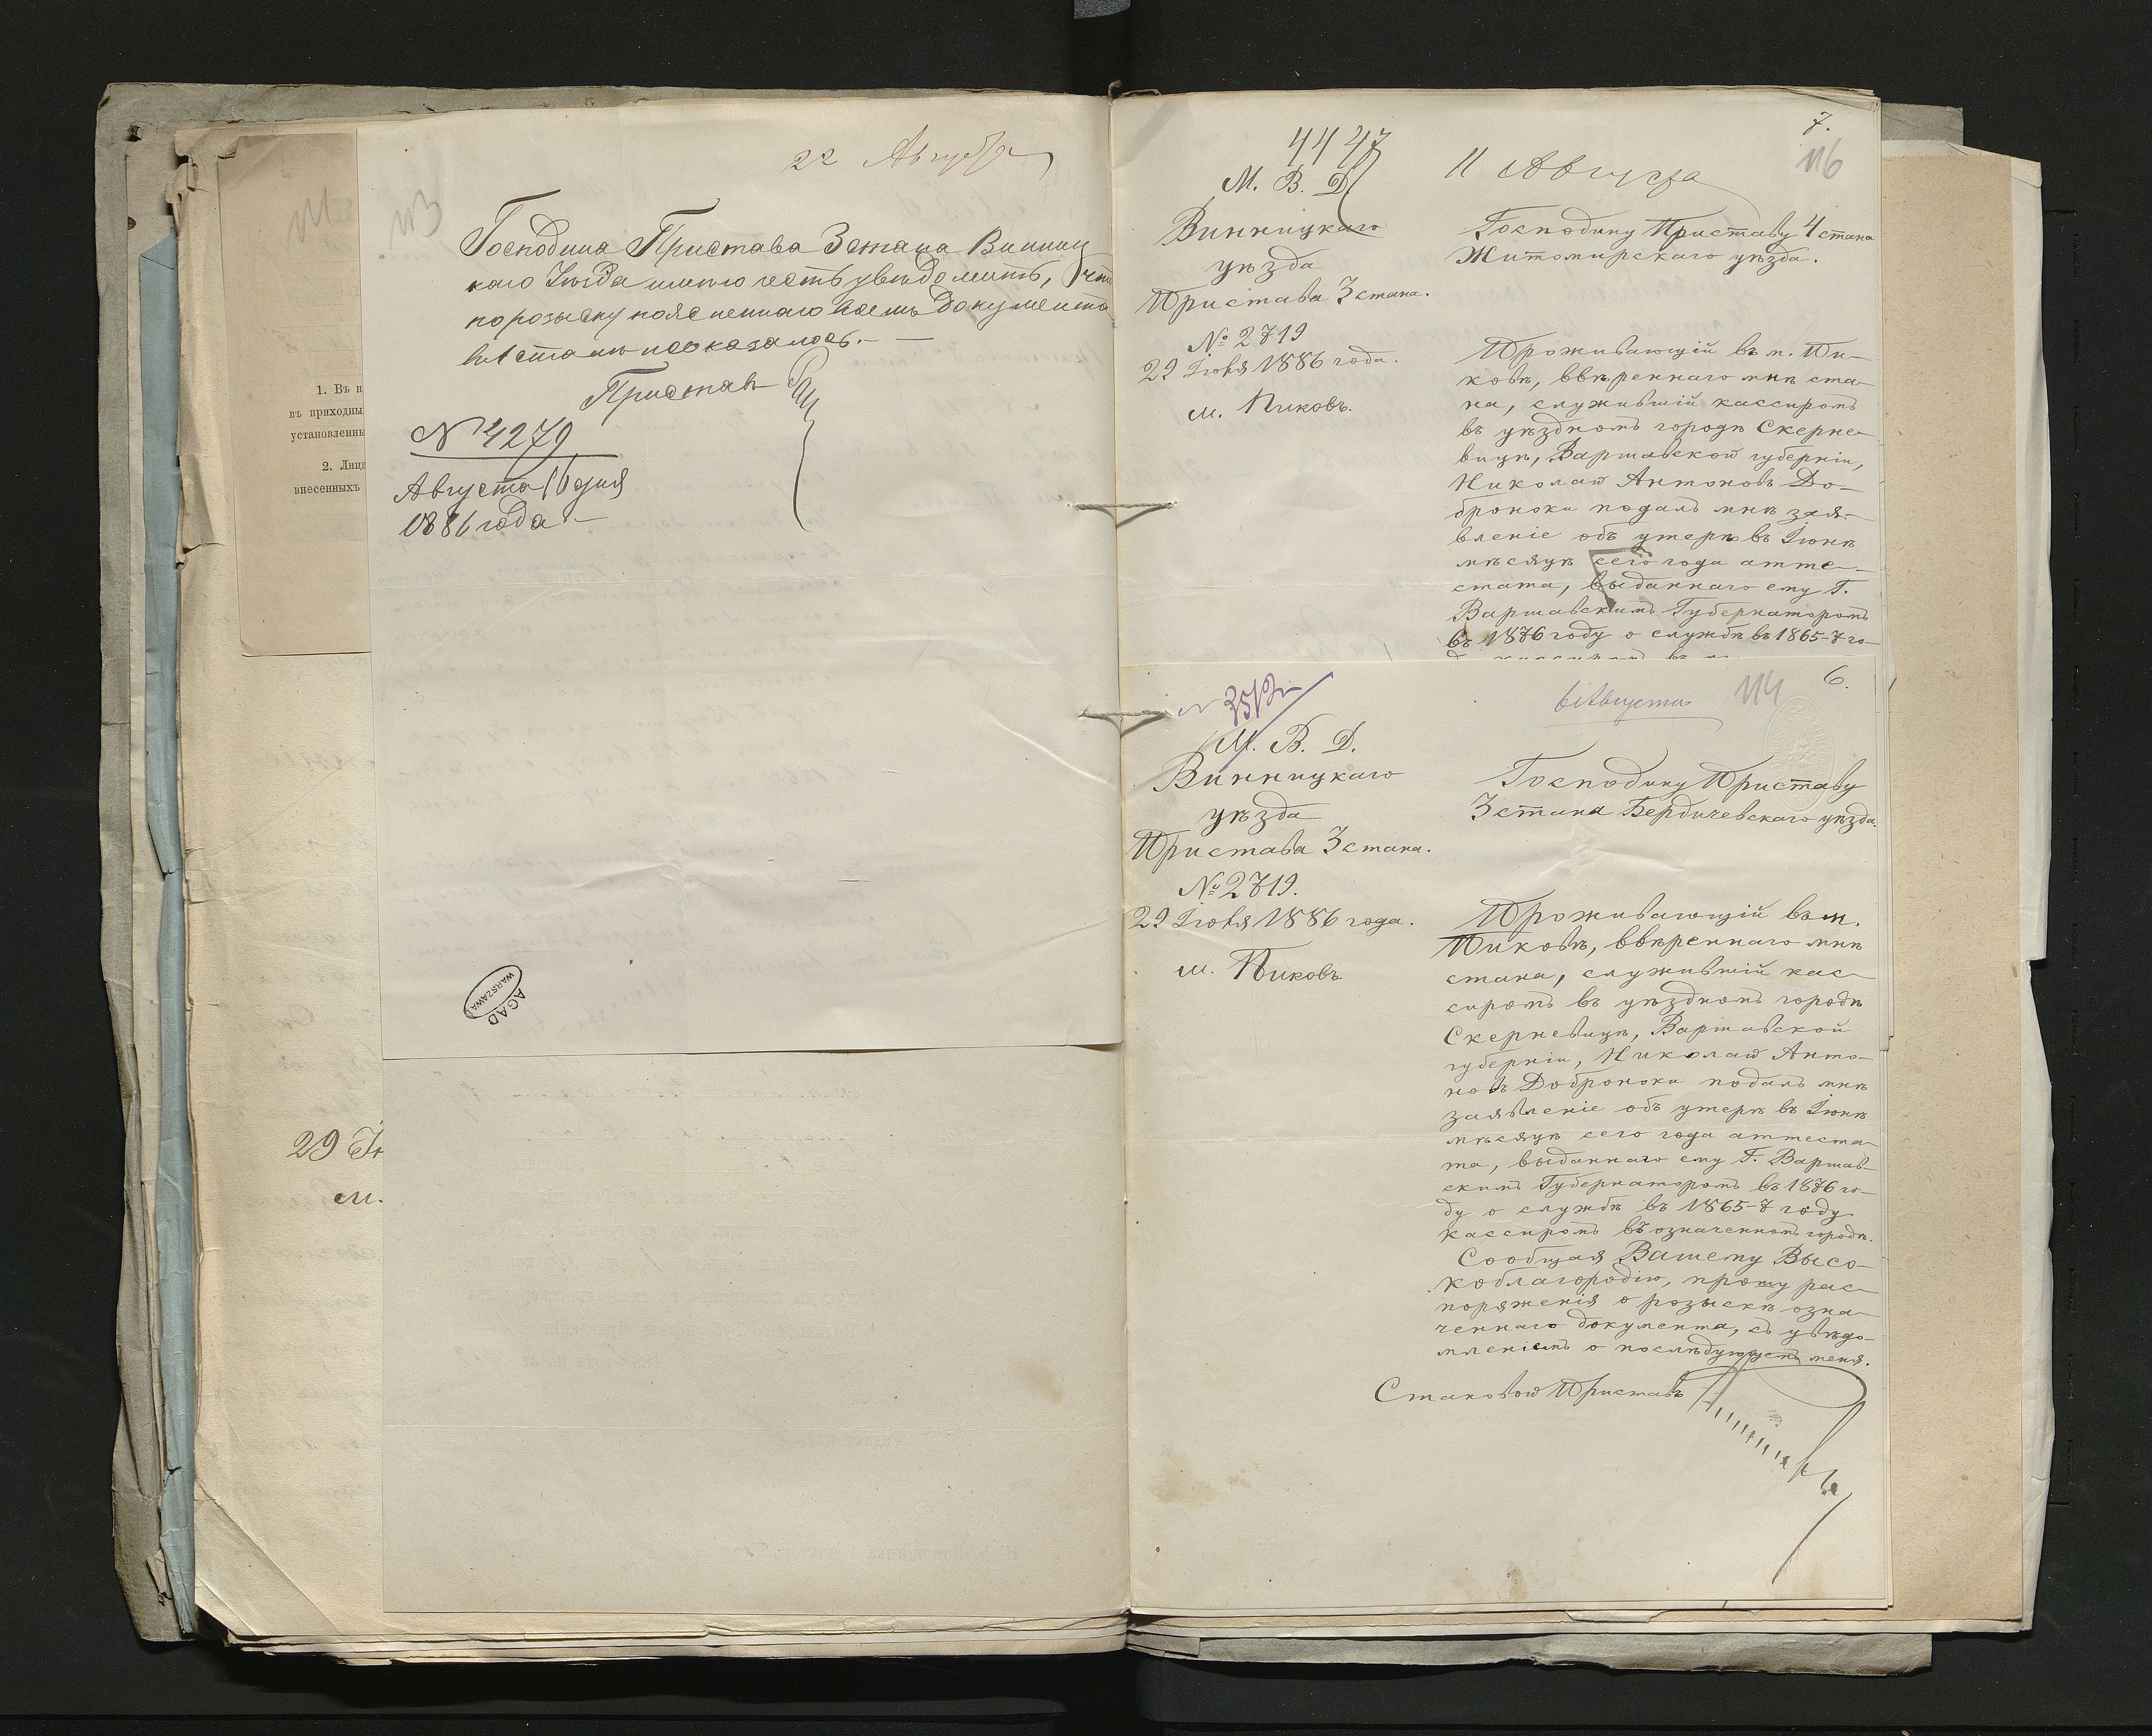 22 Августа
113
Господина Пристава 3 стана Винниц
каго Уѣзда имѣю честь увѣдомить, что
по розыску поясненнаго въ семъ документа
въ 1 станѣ не оказалось. —
Приставъ
№ 4279
Августа 16 дня
1886 года —
1. Въ п
въ приходны
установленны
2. Лица
внесенныхъ
29 Ію
м.
AGAD
WARSZAWA
7.
4447
11 Августа
116
М. В. Д.
Винницкаго
уѣзда
Пристава 3 стана.
№ 2719
29 Іюля 1886 года.
м. Пиковъ.
Господину Приставу 4 стана
Житомирскаго уѣзда.
Проживающій въ м. Пи-
ковѣ, ввѣреннаго мнѣ ста-
на, служившій кассиромъ
въ уѣздномъ городѣ Скерне-
вицѣ, Варшавской губерніи,
Николай Антоновъ До-
броноки подалъ мнѣ зая-
вленіе объ утерѣ въ Іюнѣ
мѣсяцѣ сего года атте-
стата, выданнаго ему Г.
Варшавскимъ Губернаторомъ
въ 1876 году о службѣ въ 1865-7 го-
6.
6 Августа
114
М. В. Д.
Винницкаго
уѣзда
Пристава 3 стана.
№ 2719.
29 Іюля 1886 года.
м. Пиковъ
Господину Приставу
3 стана Бердичевскаго уѣзда.
Проживающій въ м.
Пиковѣ, ввѣреннаго мнѣ
стана, служившій кас-
сиромъ въ уѣздномъ городѣ
Скерневицѣ, Варшавской
губерніи, Николай Анто-
новъ Доброноки подалъ мнѣ
заявленіе объ утерѣ въ Іюнѣ
мѣсяцѣ сего года аттеста-
та, выданнаго ему Г. Варшав-
скимъ Губернаторомъ въ 1876 го-
ду о службѣ въ 1865-7 году
кассиромъ въ означенномъ городѣ.
Сообщая Вашему Высо-
коблагородію, прошу рас-
поряженія о розыскѣ озна-
ченнаго документа, съ увѣдо-
мленіемъ о послѣдующемъ меня.
Становой Приставъ